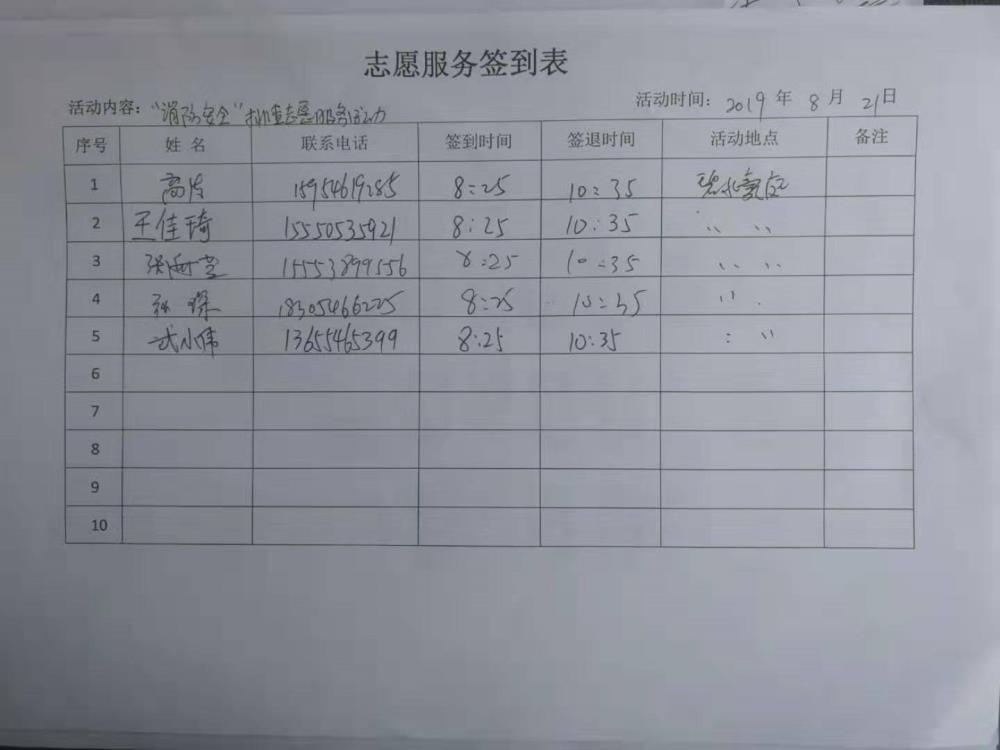 志愿服务签到表
活动内容："消防安全"排查志愿服务活动 活动时间：2019年8月21日
序号 姓名 联系电话 签到时间 签退时间 活动地点 备注
1 高 15954619285 8:25 10:35
2 王佳琦 15550535921 8:25 10:35 〃 〃
3 张海堂 15553899556 8:25 10:35 〃 〃
4 18305466225 8:25 10:35 〃
5 武小伟 13655465399 8:25 10:35 〃
6
7
8
9
10